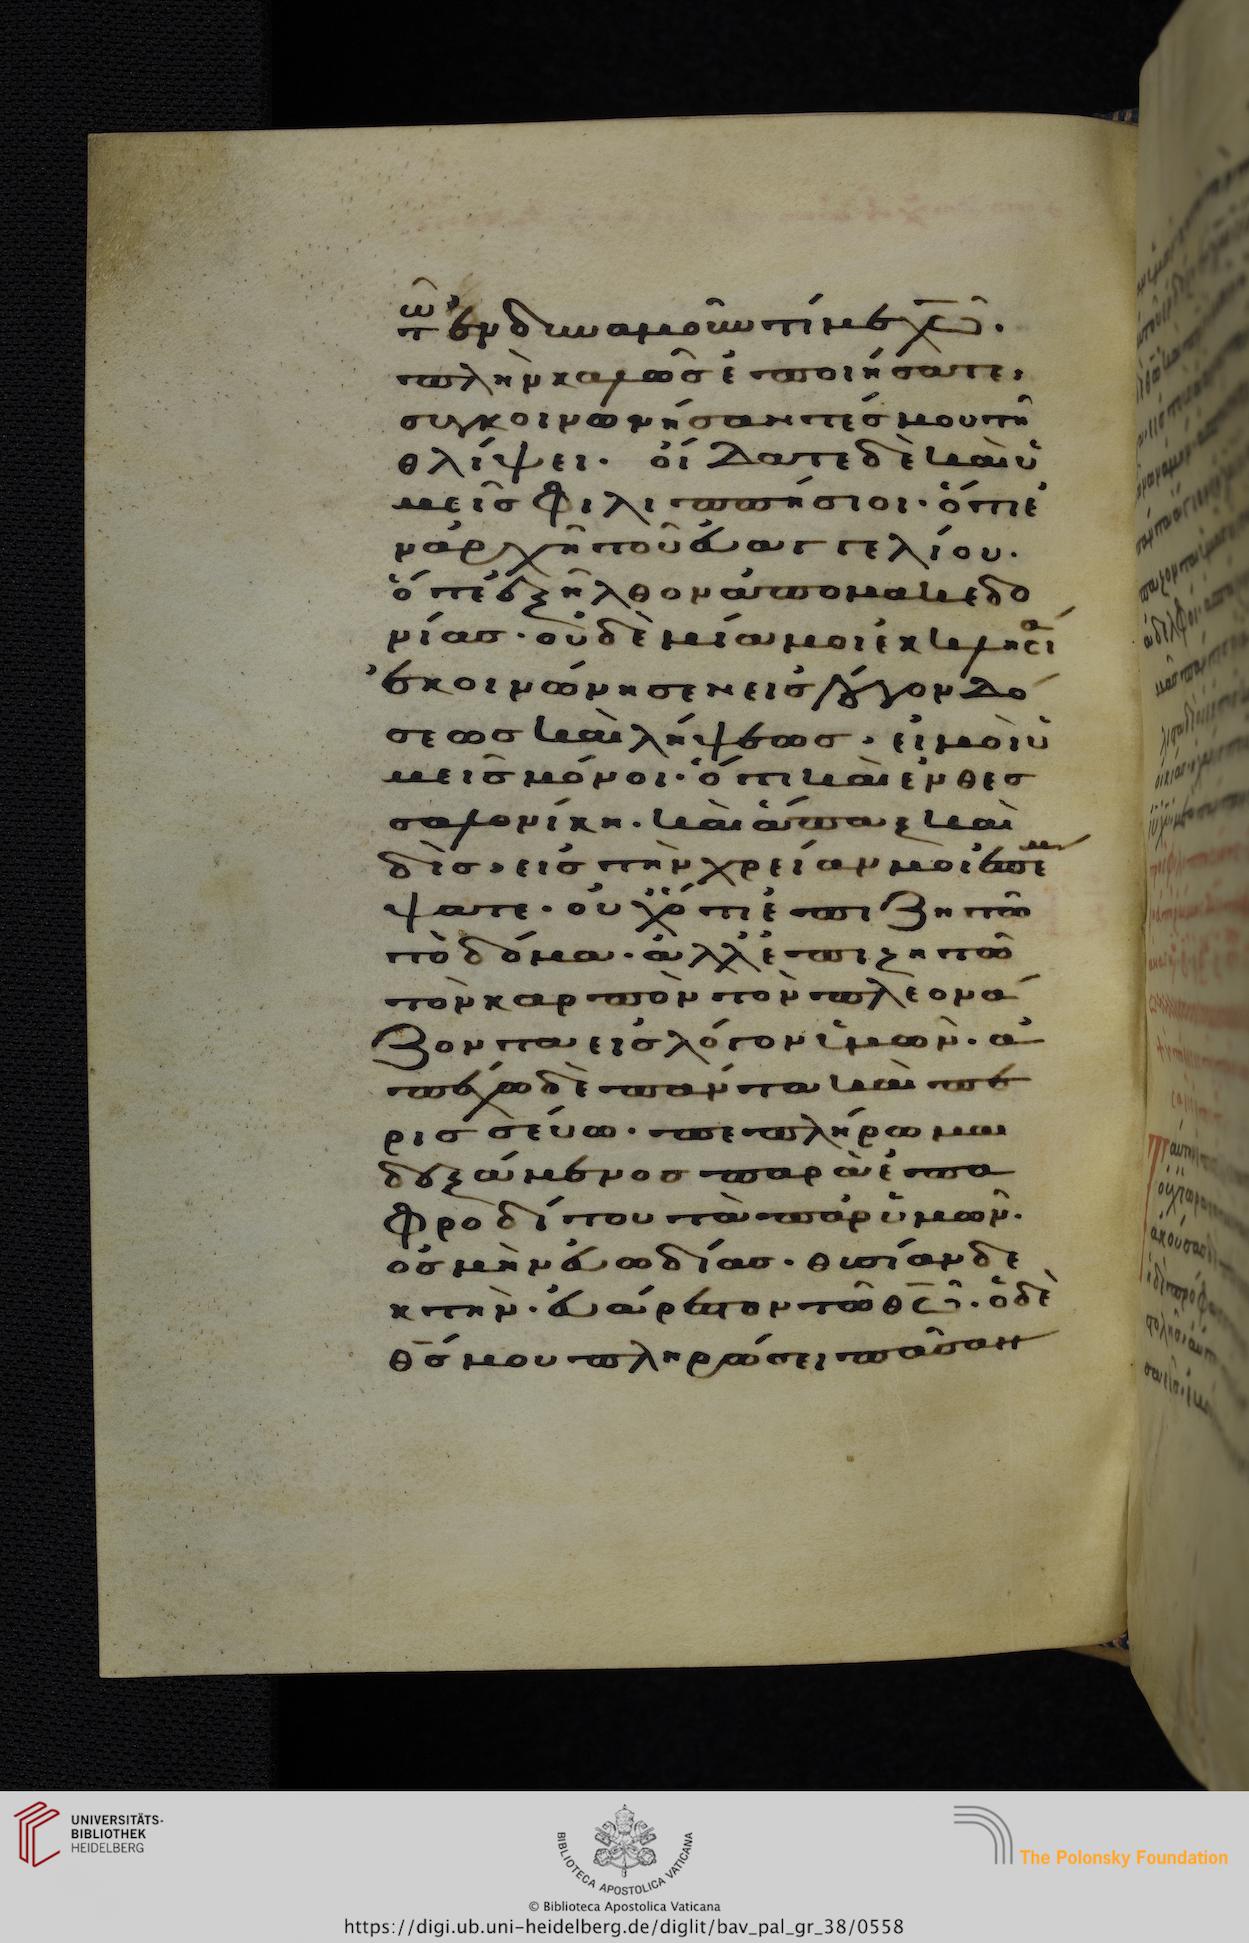 τῷ ἐνδυναμοῦντί με χῶ̅.
πλὴν καλῶσ ἐποιήσατε,
συγκοινωνήσαντέσ μου τῆ
θλίψει. οἴδατε δὲ καὶ ὑ
μεῖσ φιλιππήσιοι. ὅτι ἐ
ν ἀρχῆ τοῦ εὐαγγελίου.
ὅτε ἐξῆλθον ἀπὸ μακεδο
νίασ. οὐδὲ μία μοι ἐκκλησία
ἐκοινώνησεν εἰσ λόγον δό
σεωσ καὶ λήψεωσ. εἰ μὴ ὑ
μεῖσ μόνοι. ὅτι καὶ ἐν θεσ
σαλονίκη. καὶ ἅπαξ καὶ
δὶσ, εἰσ τὴν χρείαν μοι ἐπέμ
ψατε. οὐχ ὅτι ἐπιζητῶ
τὸ δόμα. ἀλλ' ἐπιζητῶ
τὸν καρπὸν τὸν πλεονά
ζοντα εἰσ λόγον ὑμῶν. ἀ
πέχω δὲ πάντα καὶ πε
ρισσεύω. πεπλήρωμαι
δεξάμενοσ παρὰ ἐπα
φροδίτου τὰ παρ' ὑμῶν.
ὀσμὴν εὐωδίασ. θυσίαν δε
κτὴν. εὐάρεστον τῶ θῶ̅. ὁ δὲ
θσ̅ μου πληρώσει πᾶσαν
UNIVERSITÄTS-
BIBLIOTHEK
HEIDELBERG
BIBLIOTECA APOSTOLICA VATICANA
The Polonsky Foundation
© Biblioteca Apostolica Vaticana
https://digi.ub.uni-heidelberg.de/diglit/bav_pal_gr_38/0558